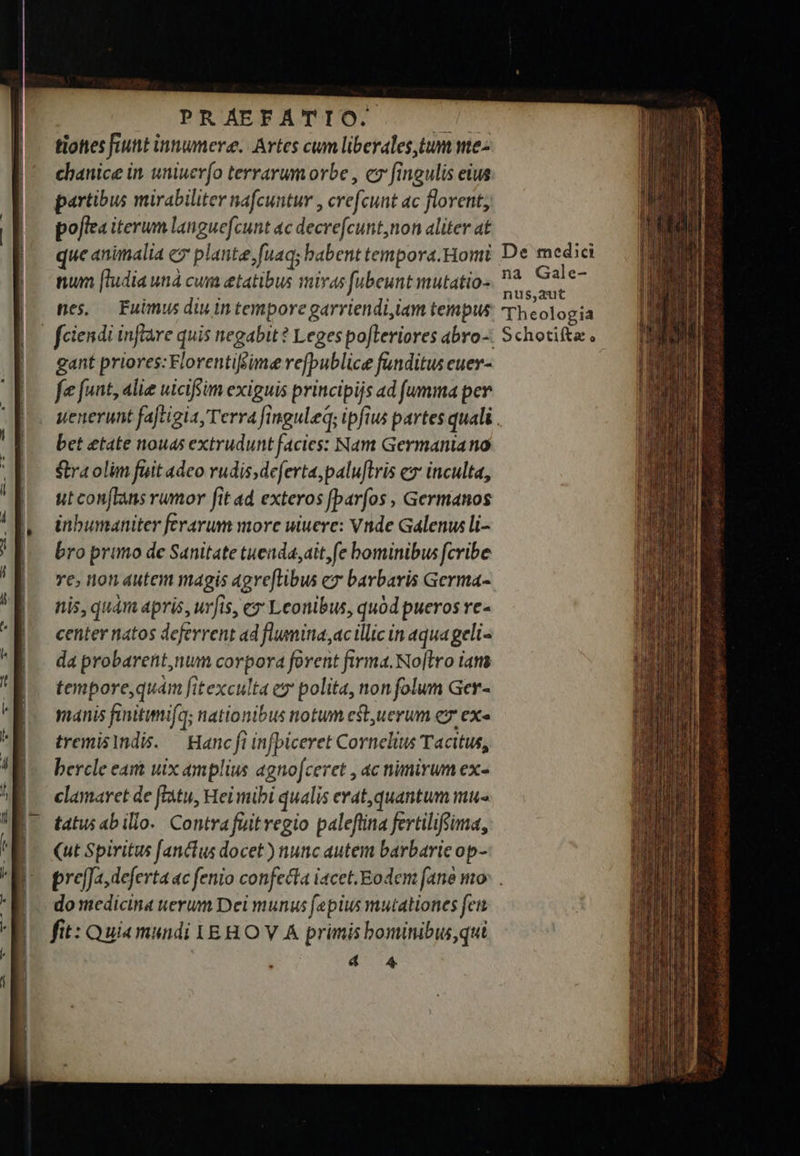 PRAEFATIO.
tiones fiunt innumeræ. Artes cum liberales, tum me-
chanicæ in uniuerſo terrarum orbe, & ſingulis eius
partibus mirabiliter naſcuntur, creſcunt ac florent,
poſtea iterum langueſcunt ac decreſcunt, non aliter at
que animalia & plantæ, ſuaq; habent tempora. Homi
num ſtudia unà cum ætatibus miras ſubeunt mutatio-
nes. Fuimus diu in tempore garriendi, iam tempus
ſciendi inſtare quis negabit? Leges poſteriores abro-
gant priores: Florentiſſimæ reſpublicæ funditus euer-
ſæ ſunt, aliæ uiciſſim exiguis principijs ad ſumma per
uenerunt faſtigia, Terra ſingulæq; ipſius partes quali
bet ætate nouas extrudunt facies: Nam Germania no
ſtra olim fuit adeo rudis, deſerta, paluſtris & inculta,
ut conſtans rumor ſit ad exteros ſparſos, Germanos
inhumaniter ferarum more uiuere: Vnde Galenus li-
bro primo de Sanitate tuenda, ait, ſe hominibus ſcribe
re, non autem magis agreſtibus & barbaris Germa-
nis, quàm apris, urſis, & Leonibus, quòd pueros re-
center natos deferrent ad flumina, ac illic in aqua geli-
da probarent, num corpora forent firma. Noſtro iam
tempore, quàm ſit exculta & polita, non ſolum Ger-
manis finitimiſq; nationibus notum eſt, uerum & ex-
tremis Indis. Hanc ſi inſpiceret Cornelius Tacitus,
hercle eam uix amplius agnoſceret, ac nimirum ex-
clamaret de ſtatu, Hei mihi qualis erat, quantum mu-
tatus ab illo. Contra fuit regio paleſtina fertiliſſima,
(ut Spiritus ſanctus docet) nunc autem barbarie op-
preſſa, deſerta ac ſenio confecta iacet. Eodem ſanè mo
do medicina uerum Dei munus ſæpius mutationes ſen
ſit: Quia mundi IEHOVA primis hominibus, qui
a 4
De medici
na Gale-
nus, aut
Theologia
Schotiſtæ.